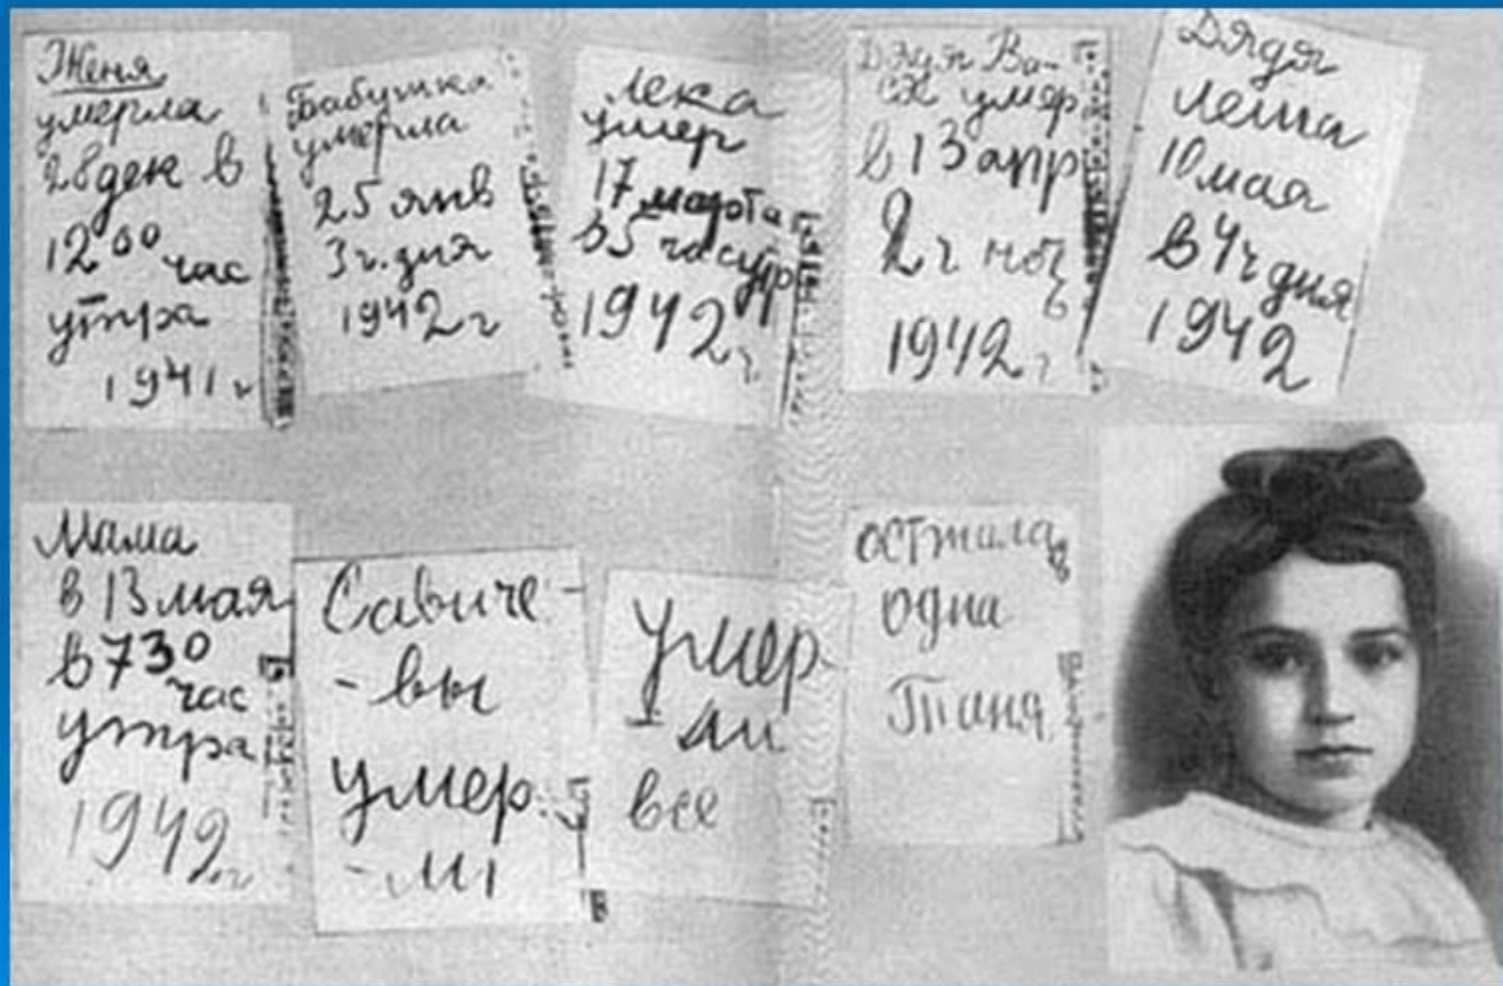 Женя
умерла
28 дек в
12 00 час
утра
1941 г
Бабушка
умерла
25 янв
3 ч. дня
1942 г
Лека
умер
17 марта
в 5 час утр
1942 г.
Дядя Ва-
ся умер
в 13 апр
2 ч ноч
1942 г
Дядя
Леша
10 мая
в 4 ч дня
1942
Мама
в 13 мая
в 7 30
час
утра
1942 г
Савиче-
- вы
умер.
- ли
Умер-
- ли
все
осталас
одна
Таня